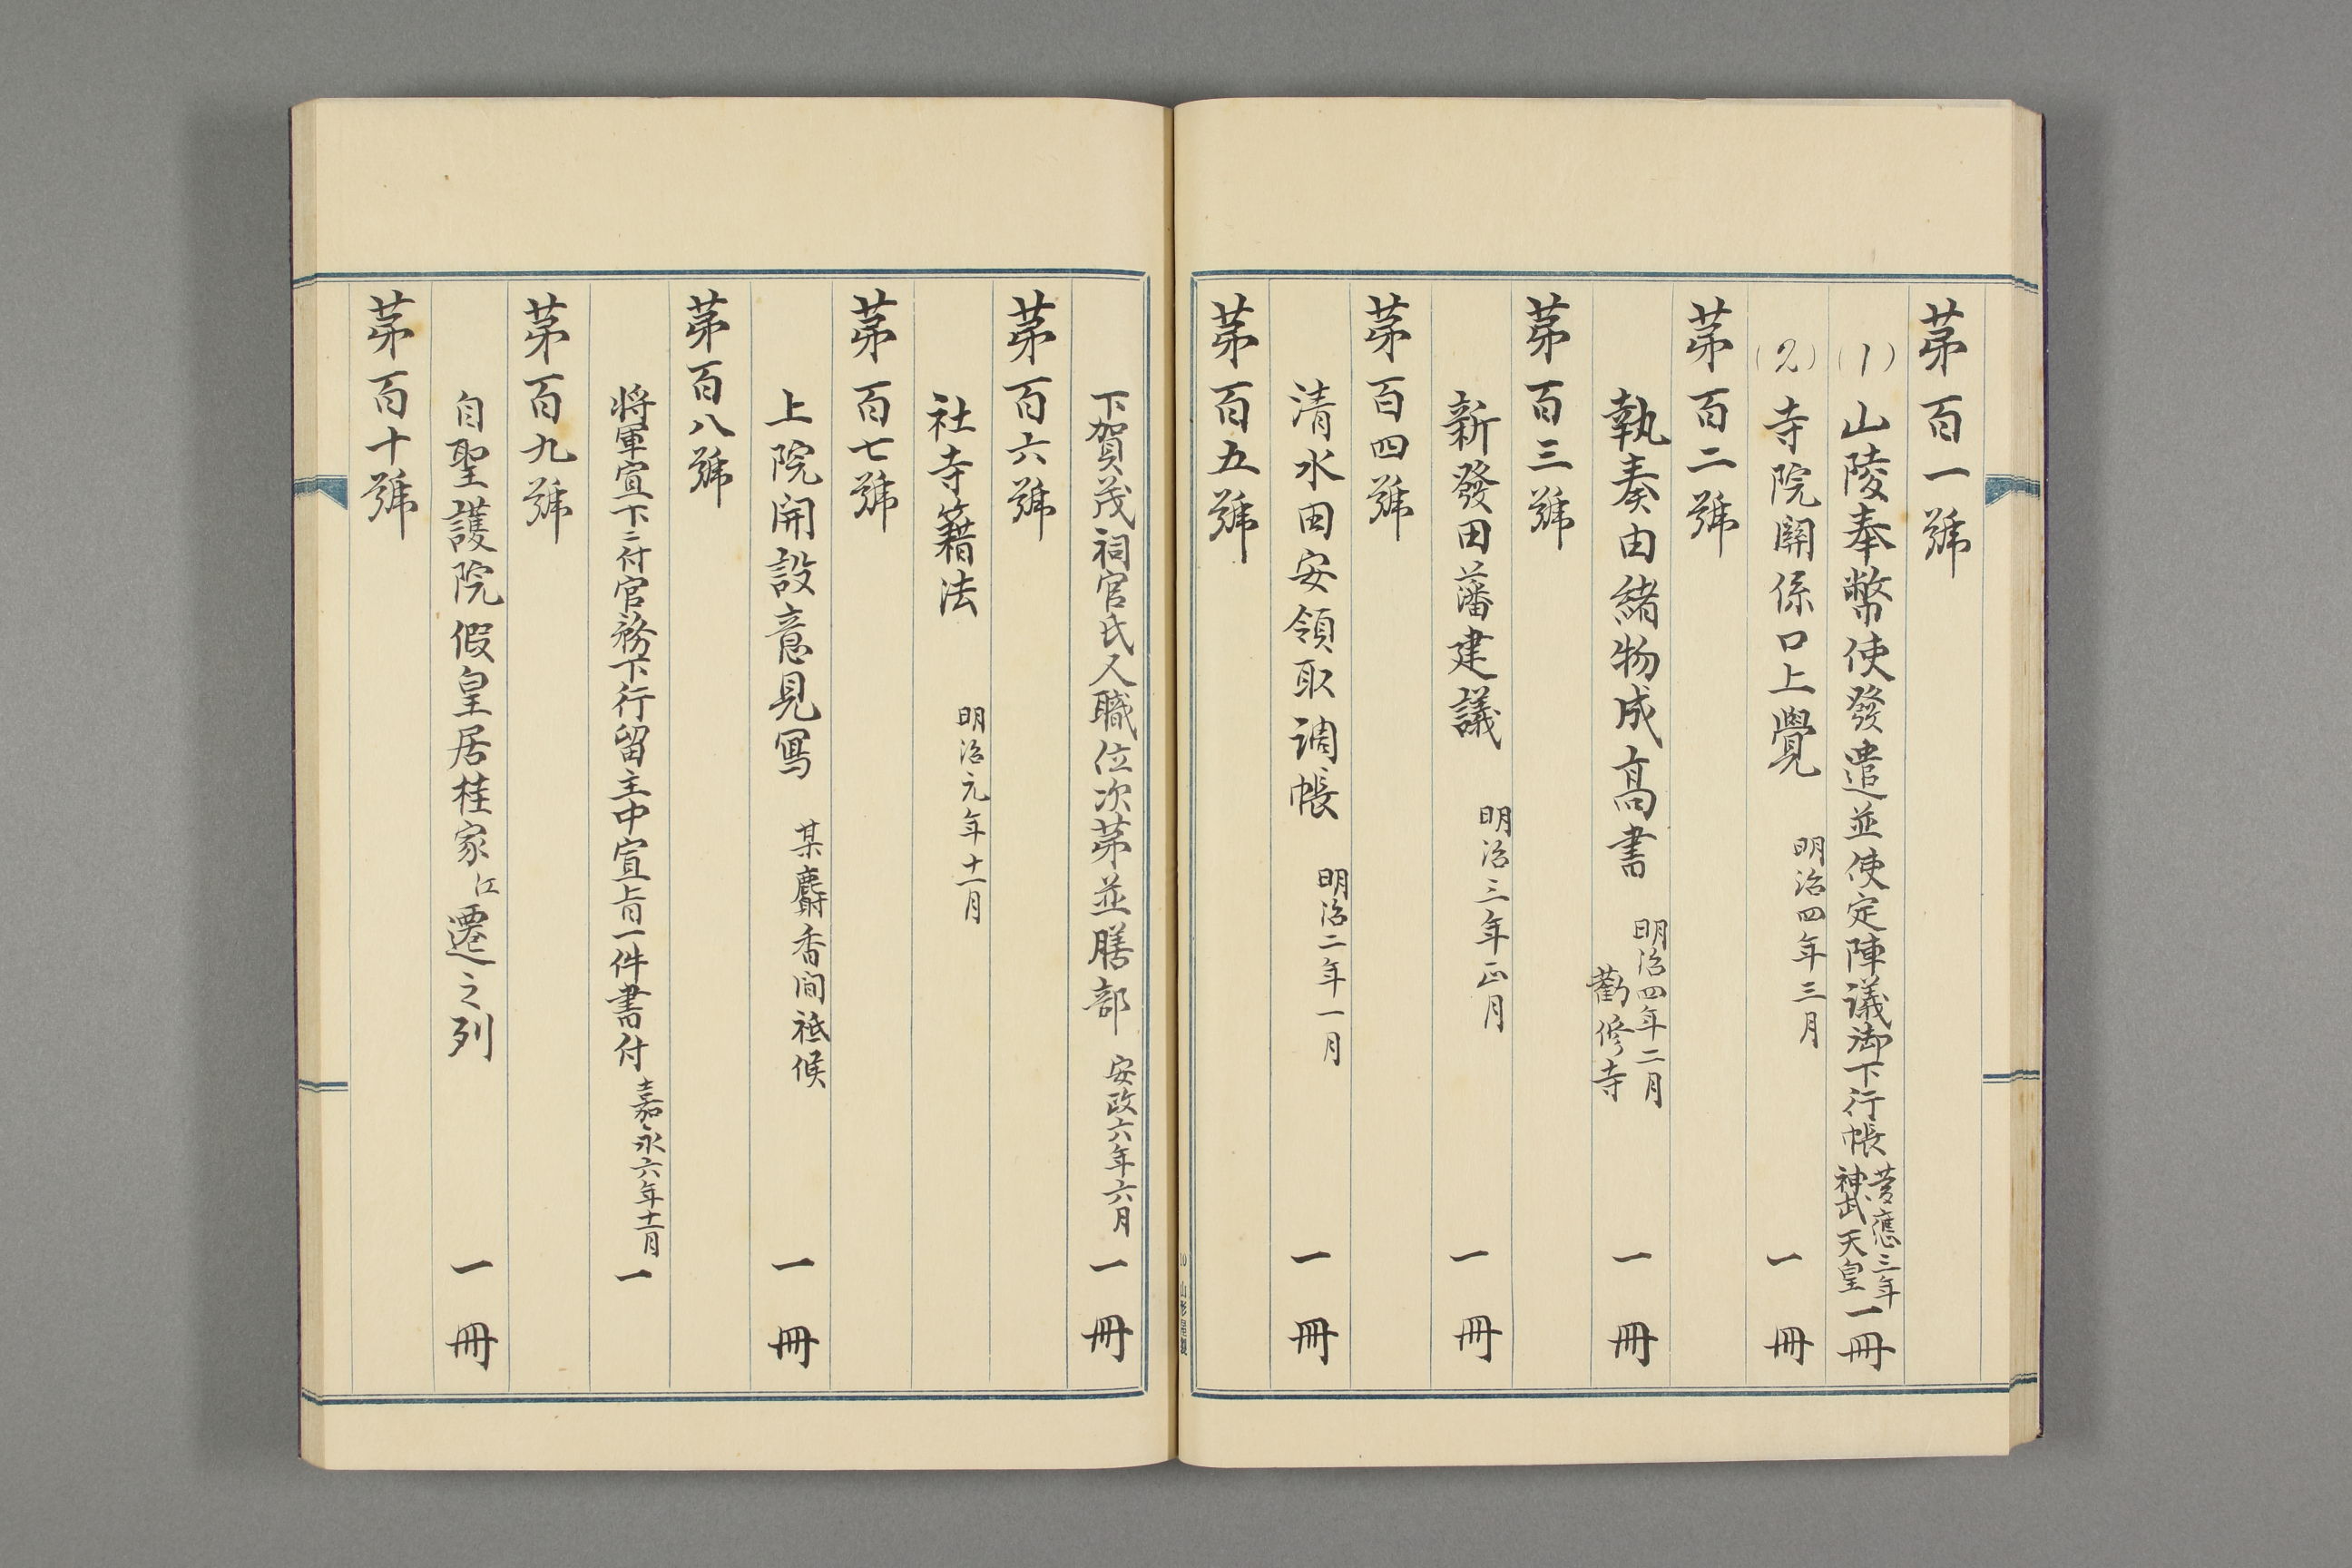 第百一號
(1) 山陵奉幣使發遣並使定陣議御下行帳 慶應三年 神武天皇 一冊
(2) 寺院關係口上覺 明治四年三月 一冊
第百二號
執奏由緒物成高書 明治四年二月 勸修寺 一冊
第百三號
新發田藩建議 明治三年正月 一冊
第百四號
清水田安領取調帳 明治二年一月 一冊
第百五號
下賀茂祠官氏人職位次第並膳部 安政六年六月 一冊
第百六號
社寺籍法 明治元年十一月
第百七號
上院開設意見寫 某麝香間祗候 一冊
第百八號
將軍宣下ニ付官務下行留主中宣旨一件書付 嘉永六年十一月 一
第百九號
自聖護院假皇居桂家江遷之列 一冊
第百十號